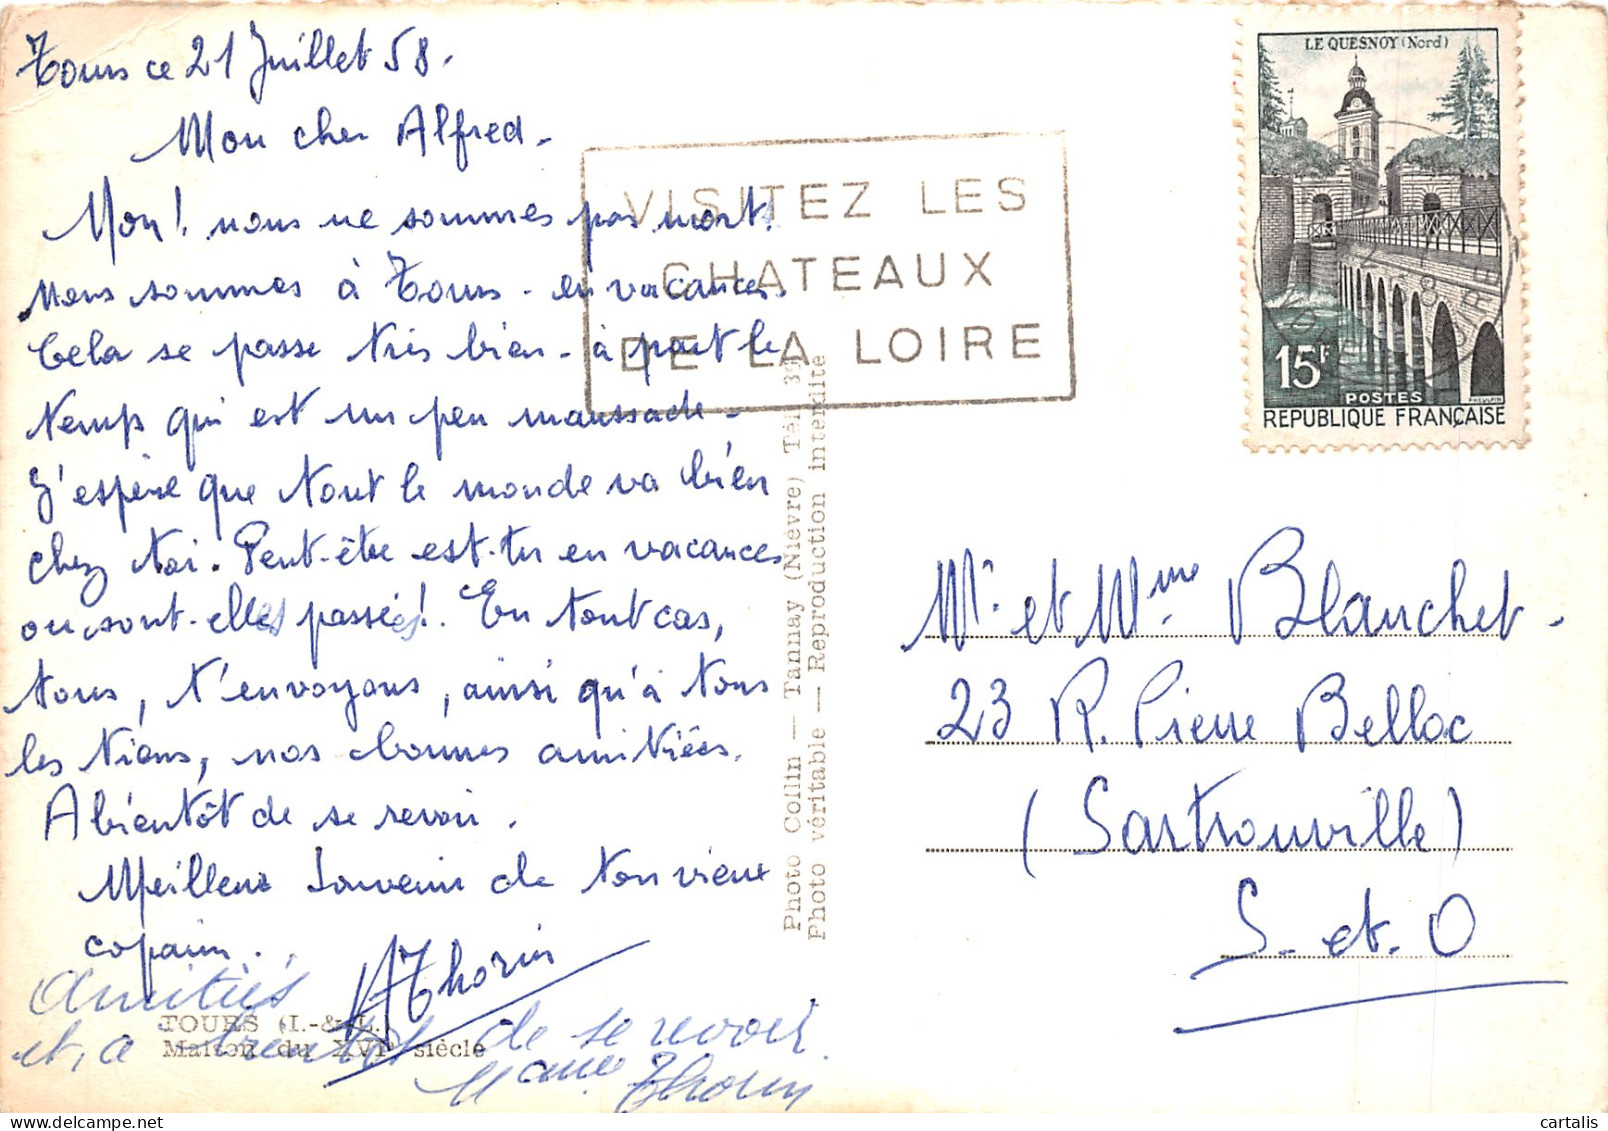 Tours ce 21 Juillet 58.
Mon cher Alfred.
Non! nous ne sommes pas mort!
Nous sommes à Tours - en vacances.
Cela se passe très bien - à part le
temps qui est un peu maussade -
J'espère que tout le monde va bien
chez toi. Peut-être est-tu en vacances
ou sont-elles passées! En tout cas,
nous, t'envoyons, ainsi qu'à tous
les tiens, nos bonnes amitiées.
A bientôt de se revoir.
Meilleur Souvenir de ton vieux
copain.
Thorin
Amitiés
et, a bientôt de se revoir.
Thorin
TOURS (I.-&-L.)
Maison du XVIe siècle
VISITEZ LES
CHATEAUX
DE LA LOIRE
Photo Collin — Tannay (Nièvre) Tél. 39
Photo véritable — Reproduction interdite
LE QUESNOY (Nord)
15F
POSTES
REPUBLIQUE FRANÇAISE
Mr. et Mme Blanchet.
23 R. Pierre Belloc
(Sartrouville)
S.-et-O
cartalis